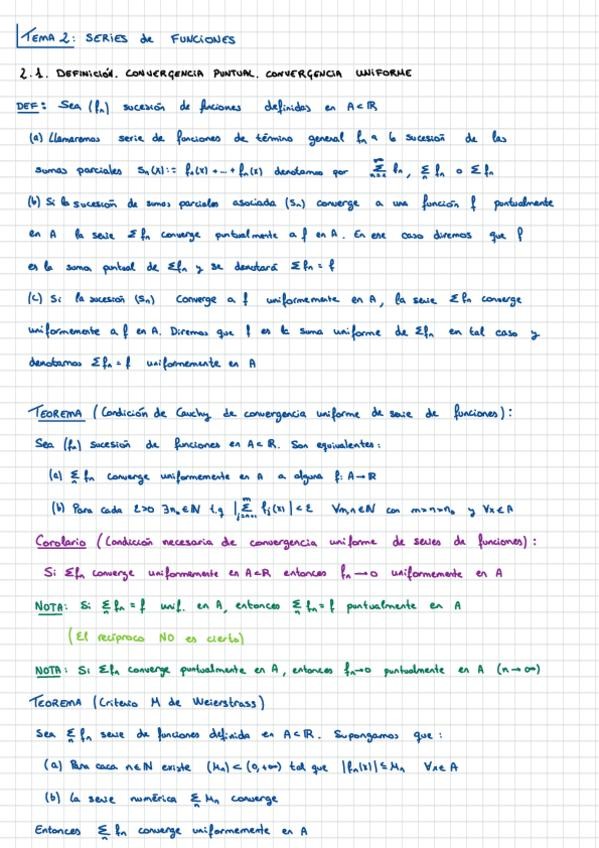 TEMA 2: SERIES de FUNCIONES
2.1. DEFINICIÓN. CONVERGENCIA PUNTUAL. CONVERGENCIA UNIFORME
DEF: Sea (fn) sucesión de funciones definidas en A⊂ℝ
(a) Llamaremos serie de funciones de término general fn a la sucesión de las
sumas parciales Sn(x):= f1(x)+...+fn(x) denotamos por ∑_{n=1}^∞ fn, ∑_n fn o ∑fn
(b) Si la sucesión de sumas parciales asociada (Sn) converge a una función f puntualmente
en A la serie ∑fn converge puntualmente a f en A. En ese caso diremos que f
es la suma puntual de ∑fn y se denotará ∑fn = f
(c) Si la sucesión (Sn) converge a f uniformemente en A, la serie ∑fn converge
uniformemente a f en A. Diremos que f es la suma uniforme de ∑fn en tal caso y
denotamos ∑fn = f uniformemente en A
TEOREMA (Condición de Cauchy de convergencia uniforme de serie de funciones):
Sea (fn) sucesión de funciones en A⊂ℝ. Son equivalentes:
(a) ∑_n fn converge uniformemente en A a alguna f: A→ℝ
(b) Para cada ε>0 ∃n₀∈ℕ t.q |∑_{j=n+1}^m fj(x)| < ε ∀m,n∈ℕ con m>n>n₀ y ∀x∈A
Corolario (Condición necesaria de convergencia uniforme de series de funciones):
Si ∑fn converge uniformemente en A⊂ℝ entonces fn→0 uniformemente en A
NOTA: Si ∑_n fn = f unif. en A, entonces ∑_n fn = f puntualmente en A
(El recíproco NO es cierto)
NOTA: Si ∑fn converge puntualmente en A, entonces fn→0 puntualmente en A (n→∞)
TEOREMA (Criterio M de Weierstrass)
Sea ∑_n fn serie de funciones definida en A⊂ℝ. Supongamos que:
(a) Para caca n∈ℕ existe (Mn)⊂(0,+∞) tal que |fn(x)| ≤ Mn ∀x∈A
(b) La serie numérica ∑_n Mn converge
Entonces ∑_n fn converge uniformemente en A